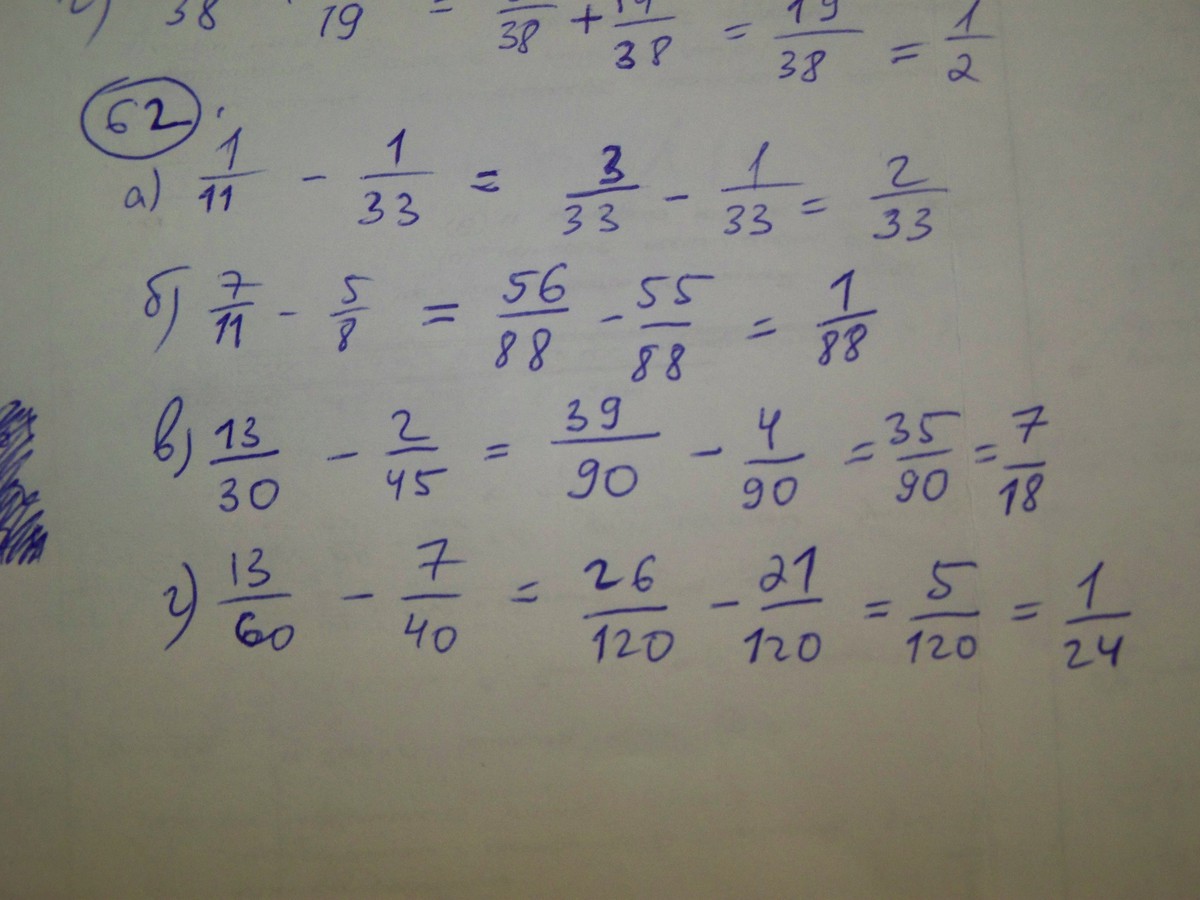 38 19 = /38 + /38 = 19/38 = 1/2
62
а) 1/11 - 1/33 = 3/33 - 1/33 = 2/33
б) 7/11 - 5/8 = 56/88 - 55/88 = 1/88
в) 13/30 - 2/45 = 39/90 - 4/90 = 35/90 = 7/18
г) 13/60 - 7/40 = 26/120 - 21/120 = 5/120 = 1/24